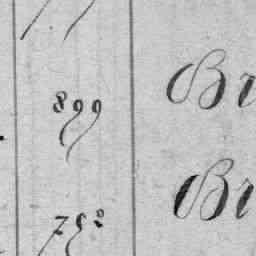 899 Br
752 Br